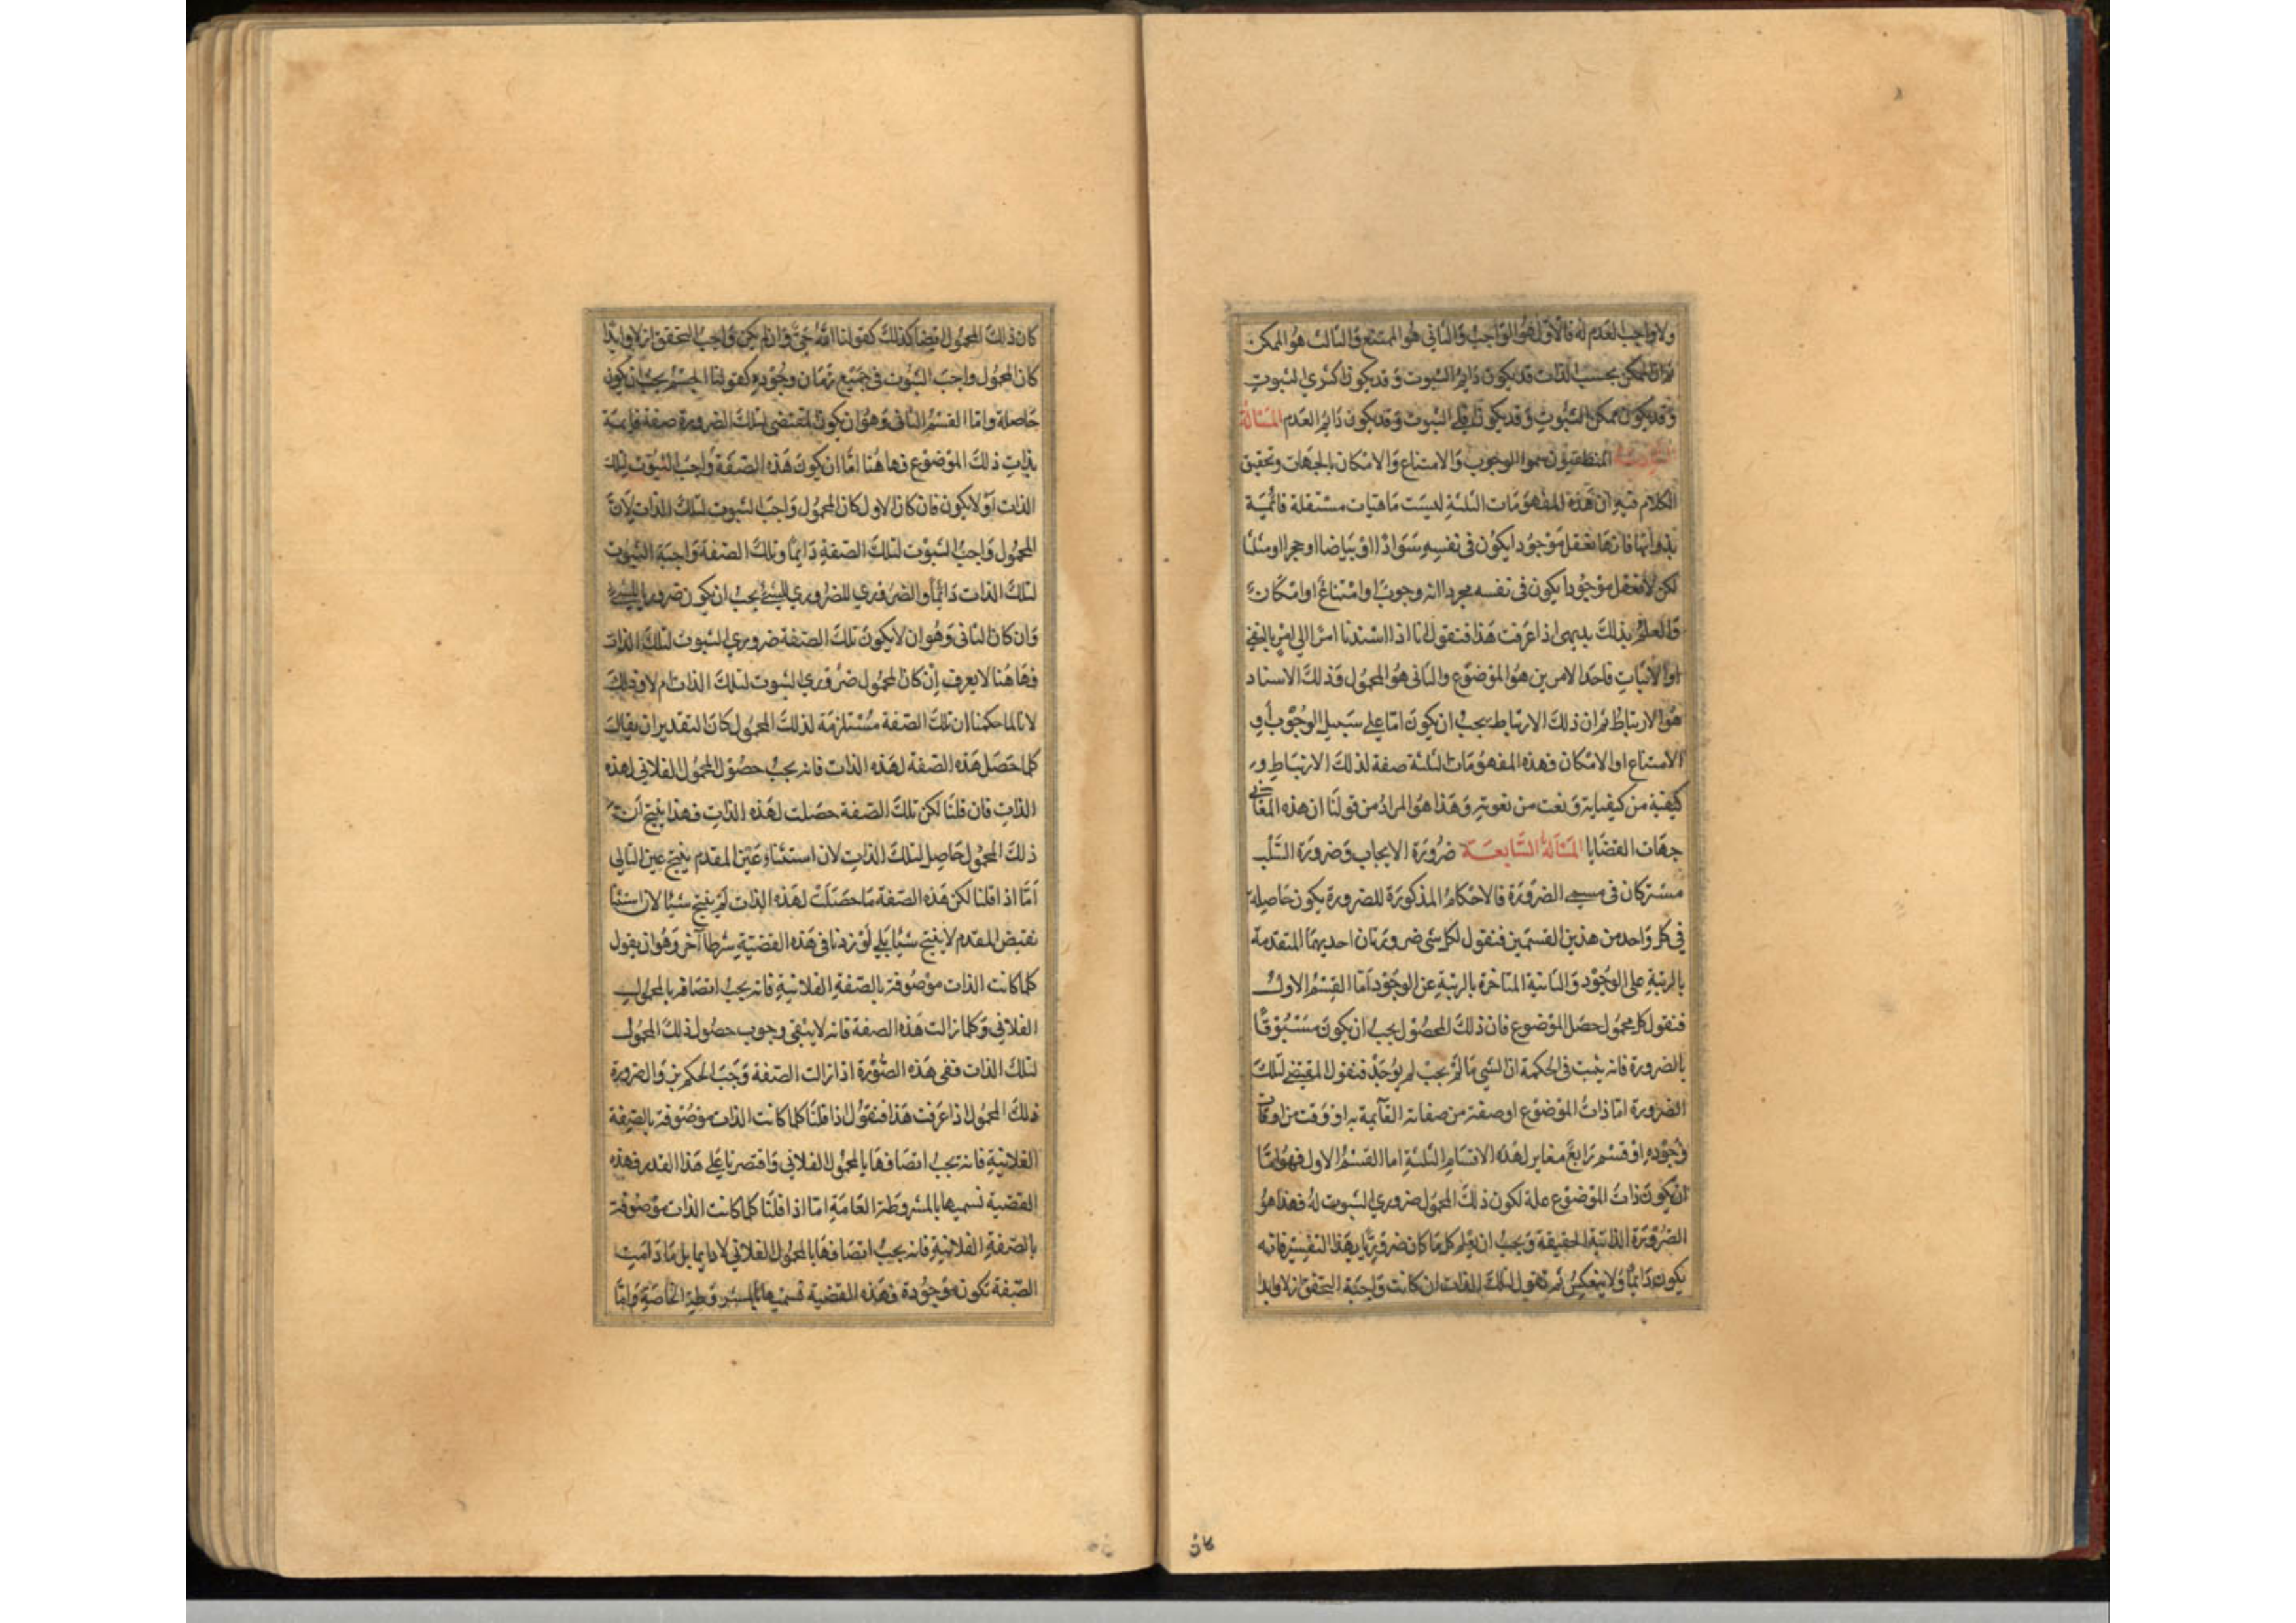 ولا واجب العدم له فالاول هو الواجب والثاني هو الممتنع والثالث هو الممكن
ثم ان الممكن بحسب الذات قد يكون دايم الثبوت وقد يكون اكثري الثبوت
وقد يكون ممكن الثبوت وقد يكون اقلي الثبوت وقد يكون دايم العدم المسالة
المنطقيون سموا الوجوب والامتناع والامكان بالجهات وتحقيق
الكلام فيه ان هذه المفهومات الثلثة ليست ماهيات مستقلة قائمية
بذواتها فانها نعقل موجودا يكون في نفسه سوادا او بياضا او حجرا او مثلثا
لكن لا نعقل موجودا يكون في نفسه مجرد انه وجوب او امتناع او امكان
والعلم بذلك بديهي اذا عرفت هذا فنقول انا اذا اسندنا امرا الى امر بالنفي
او الاثبات فاحد الامرين هو الموضوع والثاني هو المحمول وذلك الاسناد
هو الارتباط ثم ان ذلك الارتباط يجب ان يكون اما على سبيل الوجوب او
الامتناع او الامكان فهذه المفهومات الثلثة صفة لذلك الارتباط و
كيفية من كيفياته ونعت من نعوته وهذا هو المراد من قولنا ان هذه المعاني
جهات القضايا المسالة السابعة ضرورة الايجاب وضرورة السلب
مشتركان في مسمى الضرورة فالاحكام المذكورة للضرورة يكون حاصله
في كل واحد من هذين القسمين فنقول لكل شي ضرورتان احديهما المتقدمة
بالرتبة على الوجود والثانية المتاخرة بالرتبة عن الوجود اما القسم الاول
فنقول كل محمول حصل الموضوع فان ذلك الحصول يجب ان يكون مسبوقا
بالضرورة فانه يثبت في الحكمة ان الشي ما لم يجب لم يوجد فنقول المقتضي لتلك
الضرورة اما ذات الموضوع او صفة من صفاته القآيمة به او وقت من اوقات
وجوده او قسم رابع مغاير لهذه الاقسام الثلثة اما القسم الاول فهو اما
ان يكون ذات الموضوع علة لكون ذلك المحمول ضروري الثبوت له فهذا هو
الضرورة الذاتية الحقيقة ويجب ان يعلم كل ما كان ضروريا بهذا التفسير فانه
يكون دايما ولا ينعكس ثم نقول لتلك الذات ان كانت واجبة التحقق ازلا وابدا
كان
كان ذلك المحمول ايضا كذلك كقولنا الله حي وان لم يكن واجب التحقق ازلا وابدا
كان المحمول واجب الثبوت في جميع زمان وجوده كقولنا الجسم يجب ان يكون
حاصلة واما القسم الثاني وهو ان يكون المقتضي لتلك الضرورة صفة قايمية
بذات ذلك الموضوع فهاهنا اما ان يكون هذه الصفة واجب الثبوت لتلك
الذات او لا يكون فان كان الاول كان المحمول واجب الثبوت لتلك الذات لان
المحمول واجب الثبوت لتلك الصفة دايما وتلك الصفة واجبة الثبوت
لتلك الذات دائما والضروري للضروري للشيء يجب ان يكون ضروريا للشيء
وان كان الثاني وهو ان لا يكون تلك الصفة ضروري الثبوت لتلك الذات
فهاهنا لا يعرف ان كان المحمول ضروري الثبوت لتلك الذات ام لا وذلك
لانا لما حكمنا ان تلك الصفة مستلزمة لذلك المحمول كان التقدير ان يقال
كلما حصل هذه الصفة لهذه الذات فانه يجب حصول المحمول الفلاني لهذه
الذات فان قلنا لكن تلك الصفة حصلت لهذه الذات فهذا ينتج ان
ذلك المحمول حاصل لتلك الذات لان استثناء عين المقدم ينتج عين التالي
اما اذا قلنا لكن هذه الصفة ما حصلت لهذه الذات لم ينتج شيئا لان استثنا
نقيض المقدم لا ينتج شيئا بلى لو زدنا في هذه القضية شرطا آخر وهو ان يقول
كلما كانت الذات موصوفة بالصفة الفلانية فانه يجب اتصافه بالمحمول
الفلاني وكلما زالت هذه الصفة فانه لا يبقى وجوب حصول ذلك المحمول
لتلك الذات ففي هذه الصورة اذا زالت الصفة وجب الحكم بزوال ضرورة
ذلك المحمول اذا عرفت هذا فنقول اذا قلنا كلما كانت الذات موصوفة بالصفة
الفلانية فانه يجب اتصافها بالمحمول الفلاني واقتصرنا على هذا القدر فهذه
القضية نسميها بالمشروطة العامة اما اذا قلنا كلما كانت الذات موصوفة
بالصفة الفلانية فانه يجب اتصافها بالمحمول الفلاني لا دايما بل ما دامت
الصفة تكون موجودة فهذه القضية نسميها بالمشروطة الخاصة واما